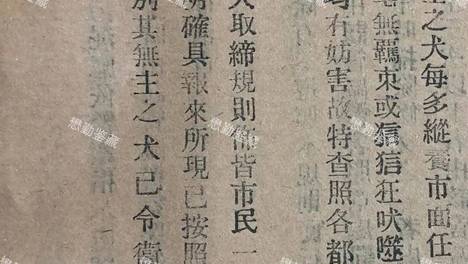 主之犬每多縱養市面任
無羈束或狺狺狂吠噬
均有妨害故特查照各都
犬取締規則皆市民一
明確具報來所現已按照
別其無主之犬已令衛
懋勤鉴藏
懋勤鉴藏
懋勤鉴藏